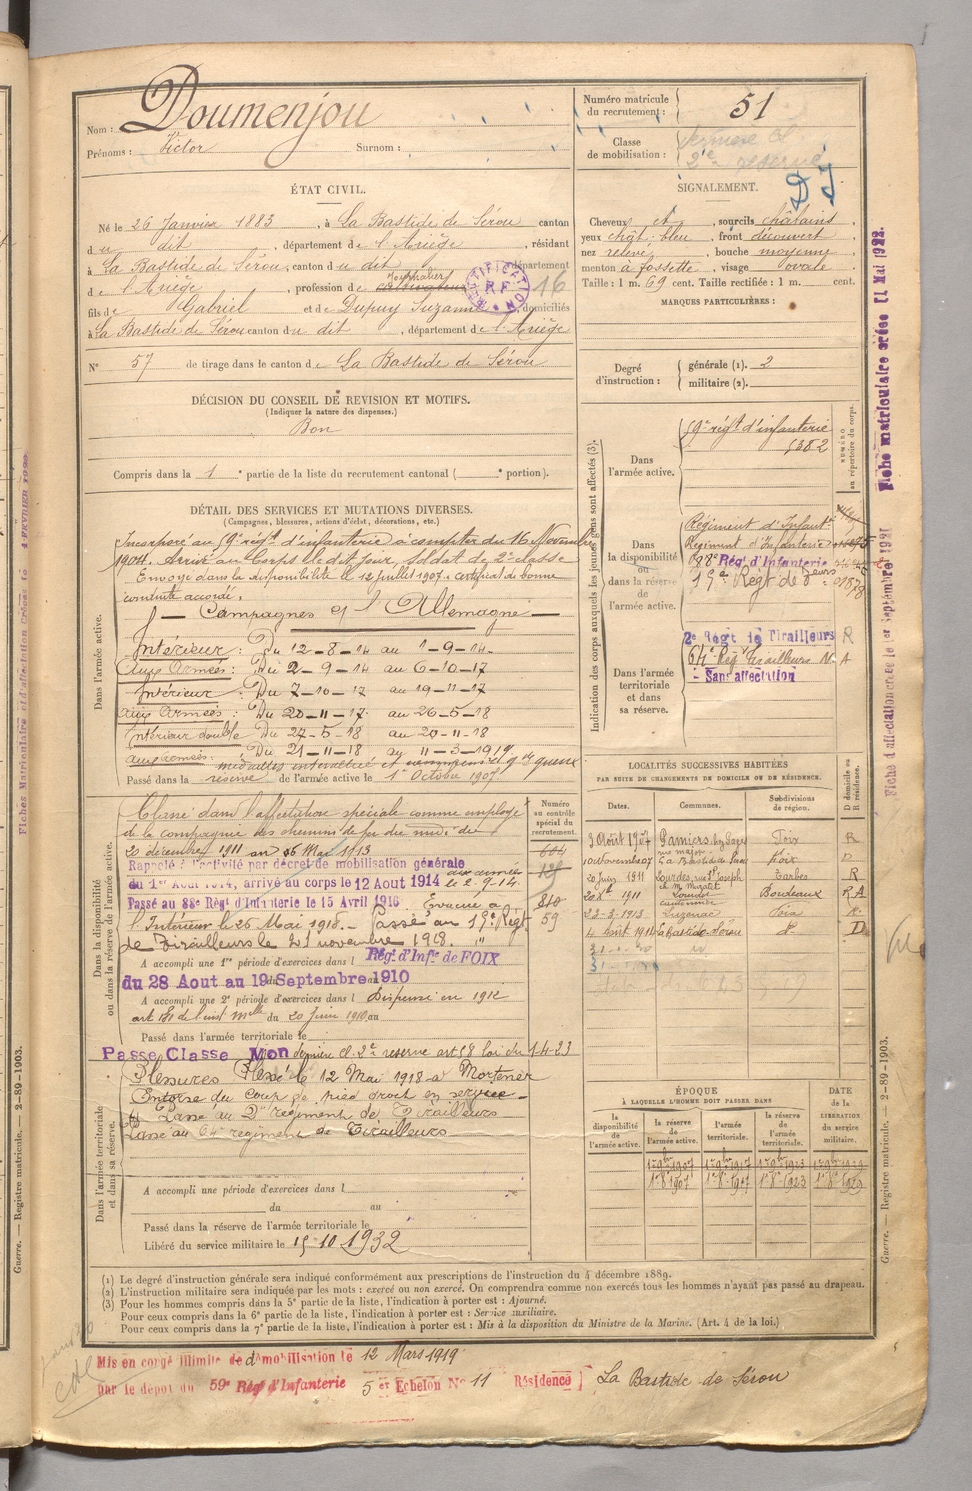 Nom : Doumenjou
Prénoms : Victor Surnom :
Numéro matricule du recrutement : 51
Classe de mobilisation :
2e reserve
ÉTAT CIVIL.
Né le 26 Janvier 1883, à La Bastide de Sérou canton
du dit, département de l'Ariège, résidant
à La Bastide de Sérou, canton du dit département
de l'Ariège, profession de cultivateur
fils de Gabriel et de Dupuy Suzanne, domiciliés
à La Bastide de Sérou canton du dit, département de l'Ariège
16
N° 57 de tirage dans le canton de La Bastide de Sérou
SIGNALEMENT.
Cheveux et, sourcils châtains
yeux chât. bleu, front découvert
nez relevé, bouche moyenne
menton à fossette, visage ovale
Taille : 1 m. 69 cent. Taille rectifiée : 1 m. cent.
MARQUES PARTICULIÈRES :
Degré d'instruction : générale (1). 2
militaire (2).
DÉCISION DU CONSEIL DE REVISION ET MOTIFS.
(Indiquer la nature des dispenses.)
Bon
Compris dans la 1e partie de la liste du recrutement cantonal ( e portion).
DÉTAIL DES SERVICES ET MUTATIONS DIVERSES.
(Campagnes, blessures, actions d'éclat, décorations, etc.)
Dans l'armée active.
Incorporé au 59e régt d'infanterie à compter du 16 Novembre
1904. Arrivé au Corps le dit jour, soldat de 2e classe
Envoyé dans la disponibilité le 12 juillet 1907. certificat de bonne
conduite accordé.
Campagnes et l'Allemagne
Intérieur : Du 12-8-14 au 1-9-14.
Aux Armées : Du 2-9-14 au 6-10-17
Intérieur : Du 7-10-17 au 19-11-17
Aux Armées : Du 20-11-17 au 26-5-18
Intérieur double Du 27-5-18 au 20-11-18
aux armées : Du 21-11-18 au 11-3-1919
Passé dans la réserve de l'armée active le 1er Octobre 1907
Dans la disponibilité ou dans la réserve de l'armée active.
Classé dans l'affectation spéciale comme employé
de la compagnie des chemins de fer du midi du
20 décembre 1911 au 26 Mai 1913
Rappelé à l'activité par décret de mobilisation générale
du 1er Aout 1914, arrivé au corps le 12 Aout 1914 aux armées le 2-9-14.
Passé au 88e Régt d'Infanterie le 15 Avril 1916 Evacué à
l'Intérieur le 26 Mai 1918. – Passé au 19e Régt
de Tirailleurs le 21 novembre 1918.
A accompli une 1re période d'exercices dans l Régt d'Infie de FOIX
du 28 Aout au 19 Septembre 1910
A accompli une 2e période d'exercices dans l Dispensé en 1912
du 20 juin 1910 au
Passé dans l'armée territoriale le
Passe Classe Mon dernière cl. 2e reserve art 58 loi du 1-4-23
Numéro au contrôle spécial du recrutement.
604
59
Dans l'armée territoriale et dans sa réserve.
Blessures Blessé le 12 Mai 1918 à Mortemer
Entorse du coup de pied droit en service
Passé au 2e régiment de Tirailleurs
Passé au 64e régiment de Tirailleurs
A accompli une période d'exercices dans l
du au
Passé dans la réserve de l'armée territoriale le
Libéré du service militaire le 15-10 1932
Indication des corps auxquels les jeunes gens sont affectés (3).
NUMÉRO au répertoire du corps.
Dans l'armée active.
59e régt d'infanterie
5382
Dans la disponibilité ou dans la réserve de l'armée active.
Régiment d'Infantie
Régiment d'Infanterie
88e Régt d'Infanterie
19e Régt de
Dans l'armée territoriale et dans sa réserve.
2e Régt de Tirailleurs R
64e Régt Tirailleurs N-A
- Sans affectation
LOCALITÉS SUCCESSIVES HABITÉES
PAR SUITE DE CHANGEMENTS DE DOMICILE OU DE RÉSIDENCE.
Dates. Communes. Subdivisions de région. D domicile ou R résidence.
3 Août 1907 Pamiers Foix R
10 Novembre 07 La Bastide de Serou Foix D
20 Juin 1911 Lourdes rue St Joseph Tarbes R
1911 Bordeaux R A
23-3-1913 Luzenac Foix R
4 Aout 1914 La Bastide Sérou do D
ÉPOQUE À LAQUELLE L'HOMME DOIT PASSER DANS
la disponibilité de l'armée active. la réserve de l'armée active. l'armée territoriale. la réserve de l'armée territoriale.
DATE de la LIBÉRATION du service militaire.
1er 8bre 1907 1er 8bre 1917 1er 8bre 1923 1er 8bre 1929
(1) Le degré d'instruction générale sera indiqué conformément aux prescriptions de l'instruction du 4 décembre 1889.
(2) L'instruction militaire sera indiquée par les mots : exercé ou non exercé. On comprendra comme non exercés tous les hommes n'ayant pas passé au drapeau.
(3) Pour les hommes compris dans la 5e partie de la liste, l'indication à porter est : Ajourné.
Pour ceux compris dans la 6e partie de la liste, l'indication à porter est : Service auxiliaire.
Pour ceux compris dans la 7e partie de la liste, l'indication à porter est : Mis à la disposition du Ministre de la Marine. (Art. 4 de la loi.)
Mis en congé illimité de démobilisation le 12 Mars 1919
par le dépôt du 59e Régt d'Infanterie 5 er Echelon N° 11 Résidence La Bastide de Sérou
Fiche matriculaire créée 11 Mai 1922.
Fiche d'affectation créée le 1er Septembre 1921
Guerre. — Registre matricule. — 2-89-1903.
Guerre. — Registre matricule. — 2-89-1903.